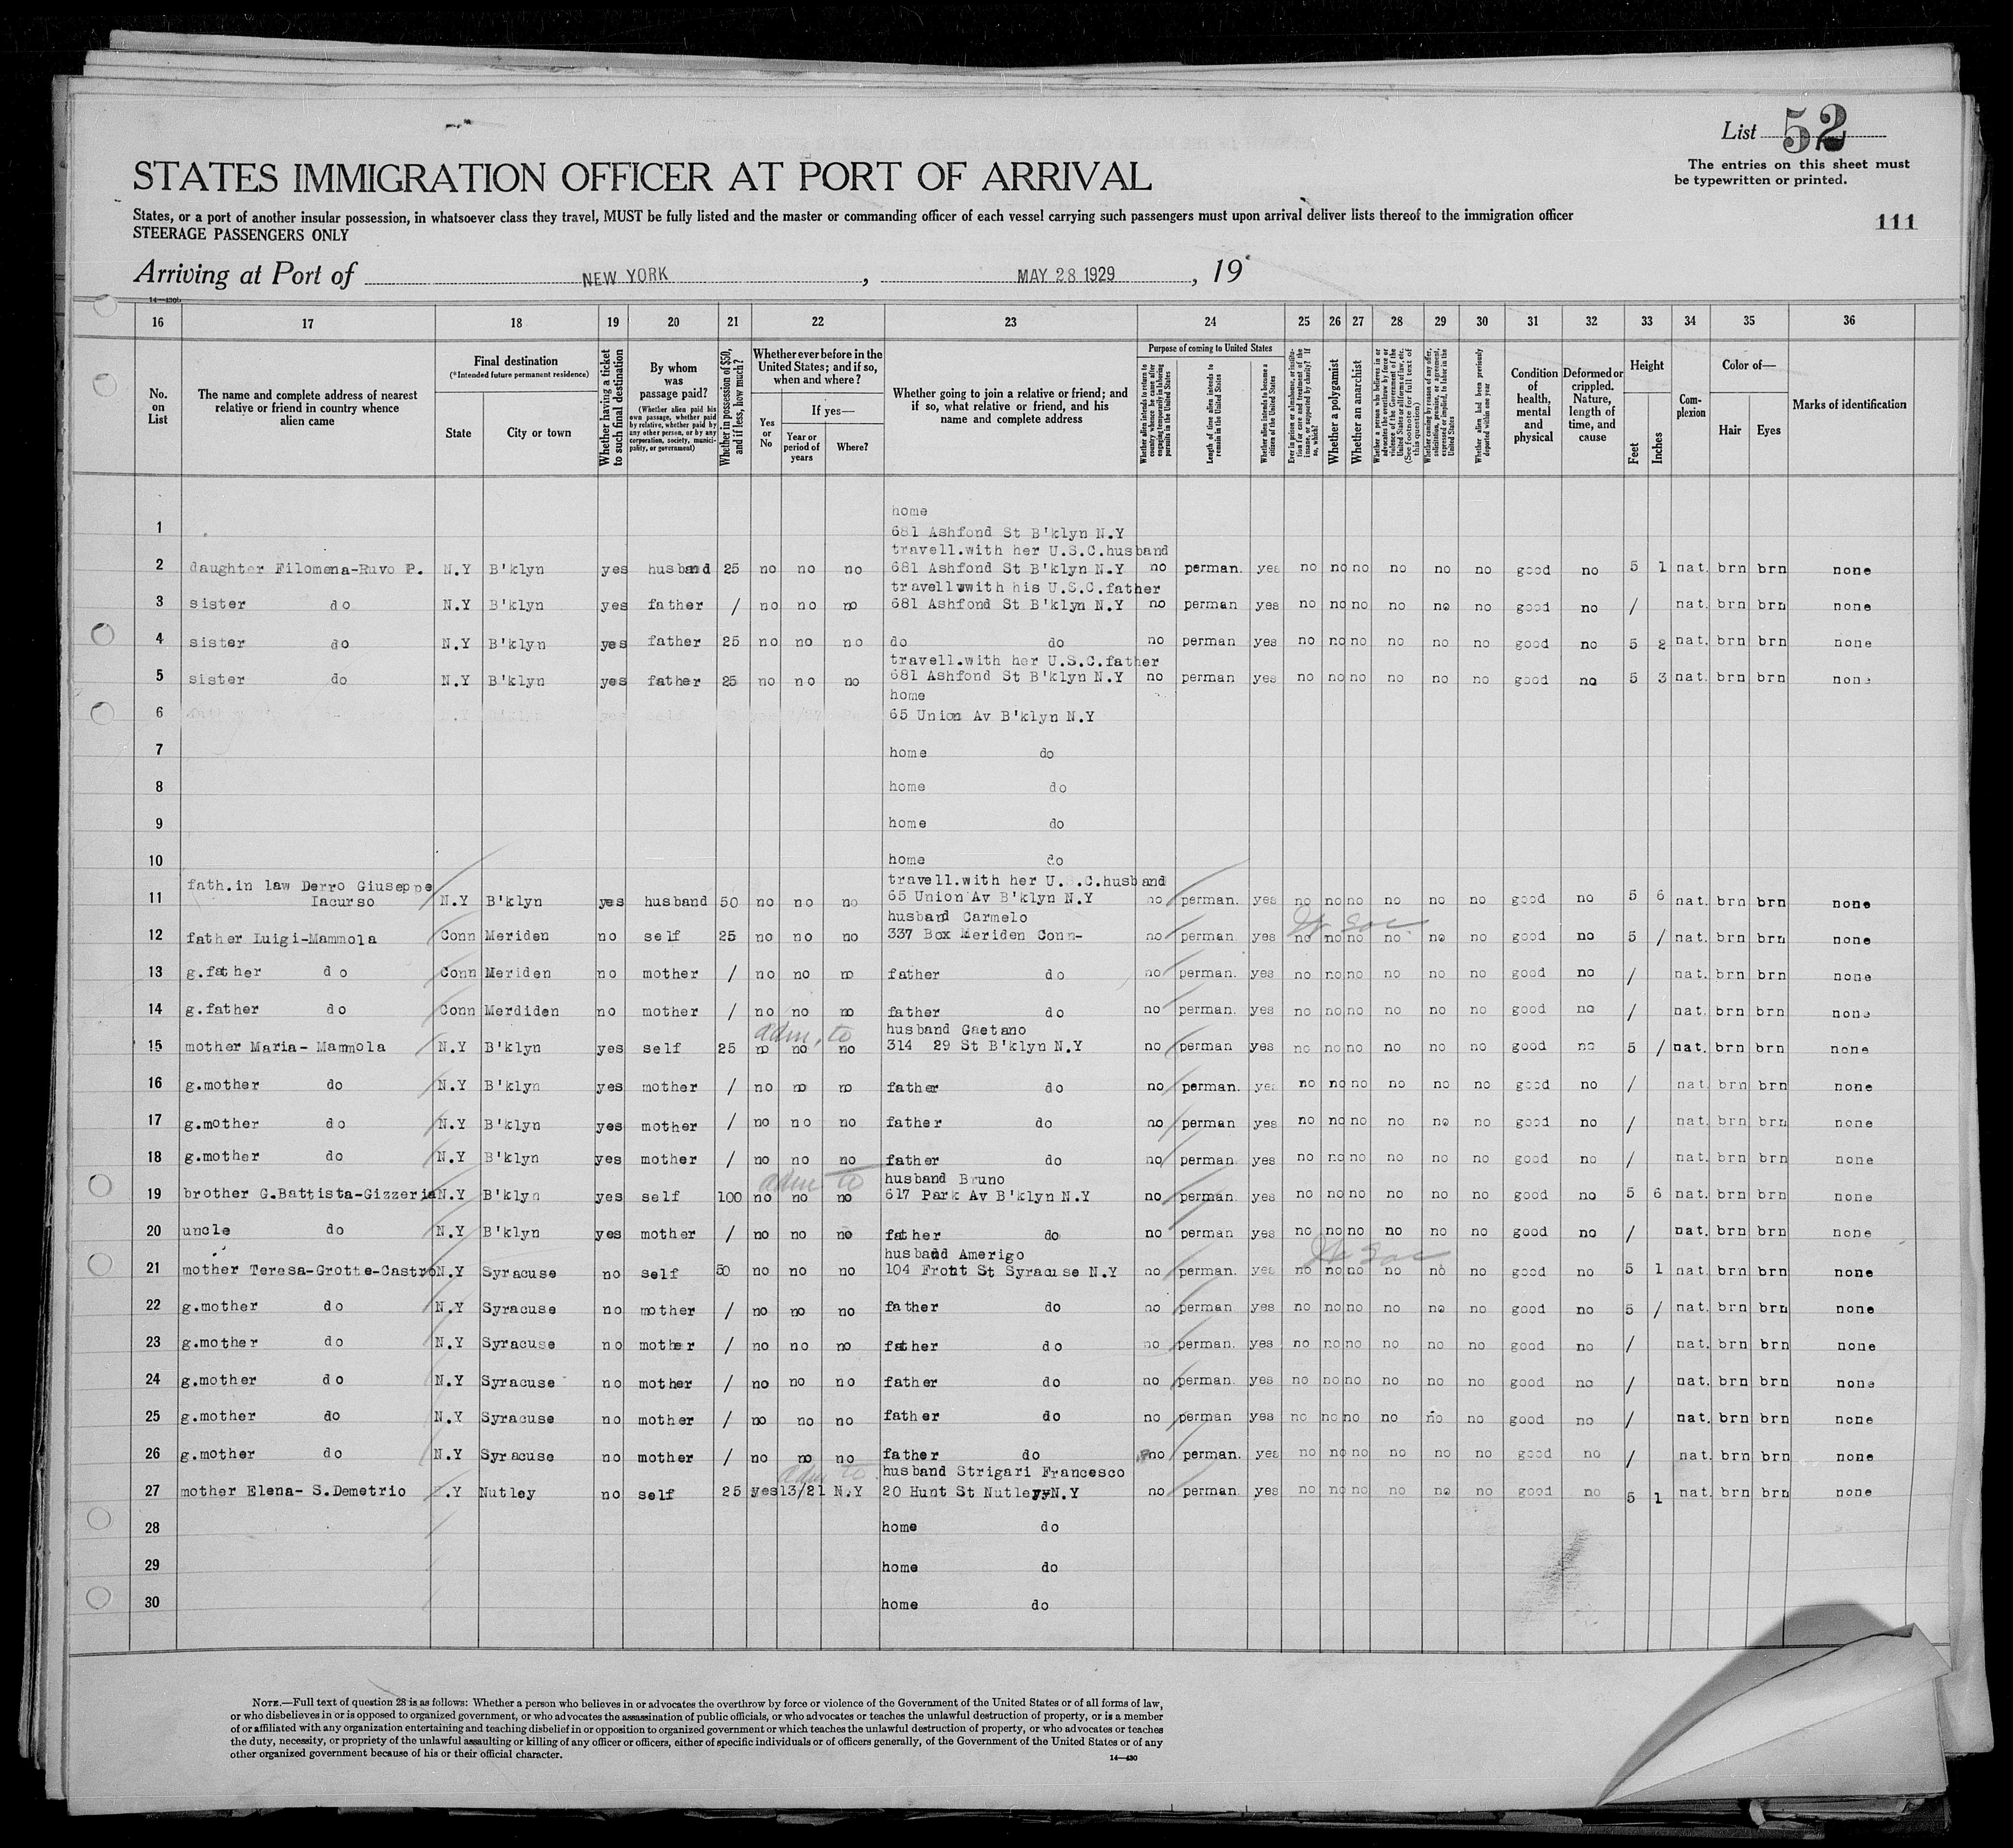 List 52
The entries on this sheet must
be typewritten or printed.
STATES IMMIGRATION OFFICER AT PORT OF ARRIVAL
States, or a port of another insular possession, in whatsoever class they travel, MUST be fully listed and the master or commanding officer of each vessel carrying such passengers must upon arrival deliver lists thereof to the immigration officer
STEERAGE PASSENGERS ONLY
111
Arriving at Port of NEW YORK, MAY 28 1929, 19
14—430
16 17 18 19 20 21 22 23 24 25 26 27 28 29 30 31 32 33 34 35 36
No. on List
The name and complete address of nearest relative or friend in country whence alien came
Final destination
(*Intended future permanent residence)
State
City or town
Whether having a ticket to such final destination
By whom was passage paid?
(Whether alien paid his own passage, whether paid by relative, whether paid by any other person, or by any corporation, society, municipality, or government)
Whether in possession of $50, and if less, how much?
Whether ever before in the United States; and if so, when and where?
Yes or No
If yes—
Year or period of years
Where?
Whether going to join a relative or friend; and if so, what relative or friend, and his name and complete address
Purpose of coming to United States
Whether alien intends to return to country whence he came after engaging temporarily in laboring pursuits in the United States
Length of time alien intends to remain in the United States
Whether alien intends to become a citizen of the United States
Ever in prison or almshouse, or institution for care and treatment of the insane, or supported by charity? If so, which?
Whether a polygamist
Whether an anarchist
Whether a person who believes in or advocates the overthrow by force or violence of the Government of the United States or all forms of law, etc. (See footnote for full text of this question)
Whether coming by reason of any offer, solicitation, promise, or agreement, expressed or implied, to labor in the United States
Whether alien had been previously deported within one year
Condition of health, mental and physical
Deformed or crippled. Nature, length of time, and cause
Height
Feet
Inches
Complexion
Color of—
Hair
Eyes
Marks of identification
home
1 681 Ashfond St B'klyn N.Y
travell.with her U.S.C.husband
2 daughter Filomena-Ruvo P. N.Y B'klyn yes husband 25 no no no 681 Ashfond St B'klyn N.Y no perman. yes no no no no no no good no 5 1 nat. brn brn none
travell with his U.S.C.father
3 sister do N.Y B'klyn yes father / no no no 681 Ashfond St B'klyn N.Y no perman yes no no no no no no good no / nat. brn brn none
4 sister do N.Y B'klyn yes father 25 no no no do do no perman yes no no no no no no good no 5 2 nat. brn brn none
travell.with her U.S.C.father
5 sister do N.Y B'klyn yes father 25 no no no 681 Ashfond St B'klyn N.Y no perman yes no no no no no no good no 5 3 nat. brn brn none
home
6 65 Union Av B'klyn N.Y
7 home do
8 home do
9 home do
10 home do
fath.in law Derro Giuseppe travell.with her U.S.C.husband
11 Iacurso N.Y B'klyn yes husband 50 no no no 65 Union Av B'klyn N.Y no perman. yes no no no no no no good no 5 6 nat. brn brn none
husband Carmelo
12 father Luigi-Mammola Conn Meriden no self 25 no no no 337 Box Meriden Conn- no perman yes no no no no no no good no 5 / nat. brn brn none
13 g.father do Conn Meriden no mother / no no no father do no perman. yes no no no no no no good no / nat. brn brn none
14 g.father do Conn Merdiden no mother / no no no father do no perman yes no no no no no no good no / nat. brn brn none
adm. to husband Gaetano
15 mother Maria- Mammola N.Y B'klyn yes self 25 no no no 314 29 St B'klyn N.Y no perman yes no no no no no no good no 5 / nat. brn brn none
16 g.mother do N.Y B'klyn yes mother / no no no father do no perman. yes no no no no no no good no / nat. brn brn none
17 g.mother do N.Y B'klyn yes mother / no no no father do no perman yes no no no no no no good no / nat. brn brn none
18 g.mother do N.Y B'klyn yes mother / no no no father do no perman yes no no no no no no good no / nat. brn brn none
adm to husband Bruno
19 brother G.Battista-Gizzeria N.Y B'klyn yes self 100 no no no 617 Park Av B'klyn N.Y no perman yes no no no no no no good no 5 6 nat. brn brn none
20 uncle do N.Y B'klyn yes mother / no no no father do no perman yes no no no no no no good no / nat. brn brn none
husband Amerigo
21 mother Teresa-Grotte-Castro N.Y Syracuse no self 50 no no no 104 Front St Syracuse N.Y no perman. yes no no no no no no good no 5 1 nat. brn brn none
22 g.mother do N.Y Syracuse no mother / no no no father do no perman yes no no no no no no good no 5 / nat. brn brn none
23 g.mother do N.Y Syracuse no mother / no no no father do no perman. yes no no no no no no good no / nat. brn brn none
24 g.mother do N.Y Syracuse no mother / no no no father do no perman. yes no no no no no no good no / nat. brn brn none
25 g.mother do N.Y Syracuse no mother / no no no father do no perman yes no no no no no no good no / nat. brn brn none
26 g.mother do N.Y Syracuse no mother / no no no father do no perman. yes no no no no no no good no / nat. brn brn none
adm to husband Strigari Francesco
27 mother Elena- S.Demetrio N.Y Nutley no self 25 yes 13/21 N.Y 20 Hunt St Nutley N.Y no perman yes no no no no no no good no 5 1 nat. brn brn none
28 home do
29 home do
30 home do
NOTE.—Full text of question 28 is as follows: Whether a person who believes in or advocates the overthrow by force or violence of the Government of the United States or of all forms of law,
or who disbelieves in or is opposed to organized government, or who advocates the assassination of public officials, or who advocates or teaches the unlawful destruction of property, or is a member
of or affiliated with any organization entertaining and teaching disbelief in or opposition to organized government or which teaches the unlawful destruction of property, or who advocates or teaches
the duty, necessity, or propriety of the unlawful assaulting or killing of any officer or officers, either of specific individuals or of officers generally, of the Government of the United States or of any
other organized government because of his or their official character.
14—430